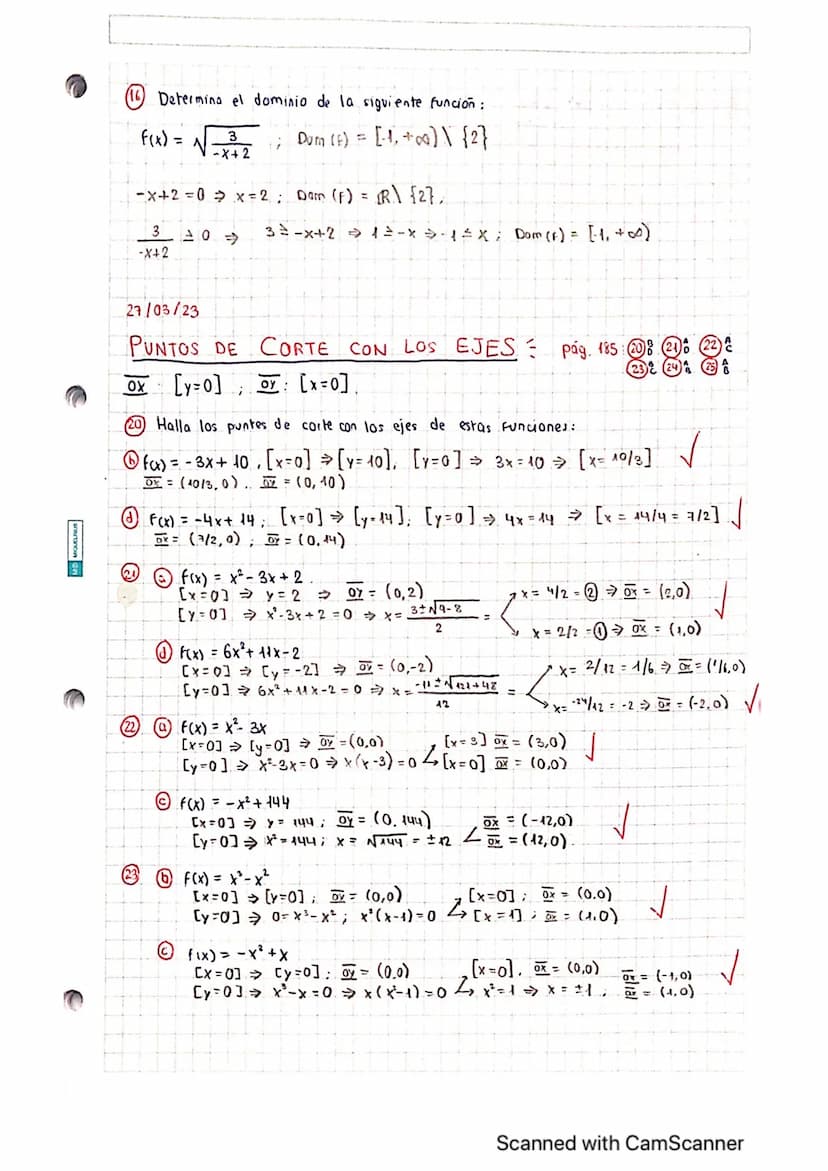 16 Determina el dominio de la siguiente función:
f(x) = √(3/(-x+2)) ; Dom (f) = [-1, +∞) \ {2}
-x+2 = 0 ⇒ x = 2 ; Dom (f) = ℝ \ {2}.
3/(-x+2) ≥ 0 ⇒ 3 ≥ -x+2 ⇒ 1 ≥ -x ⇒ -1 ≤ x ; Dom (f) = [-1, +∞)
27/03/23
PUNTOS DE CORTE CON LOS EJES: pág. 185: 20 B D 21 A D 22 A C
23 24 25 A B
OX : [y=0] ; OY : [x=0].
20 Halla los puntos de corte con los ejes de estas funciones:
b f(x) = -3x + 10 . [x=0] ⇒ [y=10], [y=0] ⇒ 3x = 10 ⇒ [x = 10/3] ✓
OX = (10/3, 0) . OY = (0, 10)
d f(x) = -4x + 14 ; [x=0] ⇒ [y=14]; [y=0] ⇒ 4x = 14 ⇒ [x = 14/4 = 7/2] ✓
OX = (7/2, 0) ; OY = (0, 14)
21 f(x) = x² - 3x + 2 .
[x=0] ⇒ y = 2 ⇒ OY = (0,2)
x = 4/2 = 2 ⇒ OX = (2,0) ✓
[y=0] ⇒ x² - 3x + 2 = 0 ⇒ x = (3 ± √9-8)/2 =
x = 2/2 = 1 ⇒ OX = (1,0)
d f(x) = 6x² + 11x - 2
[x=0] ⇒ [y = -2] ⇒ OY = (0,-2)
x = 2/12 = 1/6 ⇒ OX = (1/6,0)
[y=0] ⇒ 6x² + 11x - 2 = 0 ⇒ x = (-11 ± √121+48)/12 =
x = -24/12 = -2 ⇒ OX = (-2,0) ✓
22 a f(x) = x² - 3x
[x=0] ⇒ [y=0] ⇒ OY = (0,0) [x=3] OX = (3,0) ✓
[y=0] ⇒ x² - 3x = 0 ⇒ x(x-3) = 0 [x=0] OX = (0,0)
c f(x) = -x² + 144
[x=0] ⇒ y = 144 ; OY = (0, 144) OX = (-12,0) ✓
[y=0] ⇒ x² = 144 ; x = √144 = ±12 OX = (12,0).
23 b f(x) = x³ - x²
[x=0] ⇒ [y=0] ; OY = (0,0) [x=0] ; OX = (0,0) ✓
[y=0] ⇒ 0 = x³ - x² ; x²(x-1) = 0 [x=1] ; OX = (1,0)
c f(x) = -x² + x
[x=0] ⇒ [y=0] ; OY = (0,0) [x=0]. OX = (0,0) OX = (-1,0) ✓
[y=0] ⇒ x³ - x = 0 ⇒ x(x²-1) = 0 x² = 1 ⇒ x = ±1 . OX = (1,0)
MIQUELRIUS
Scanned with CamScanner